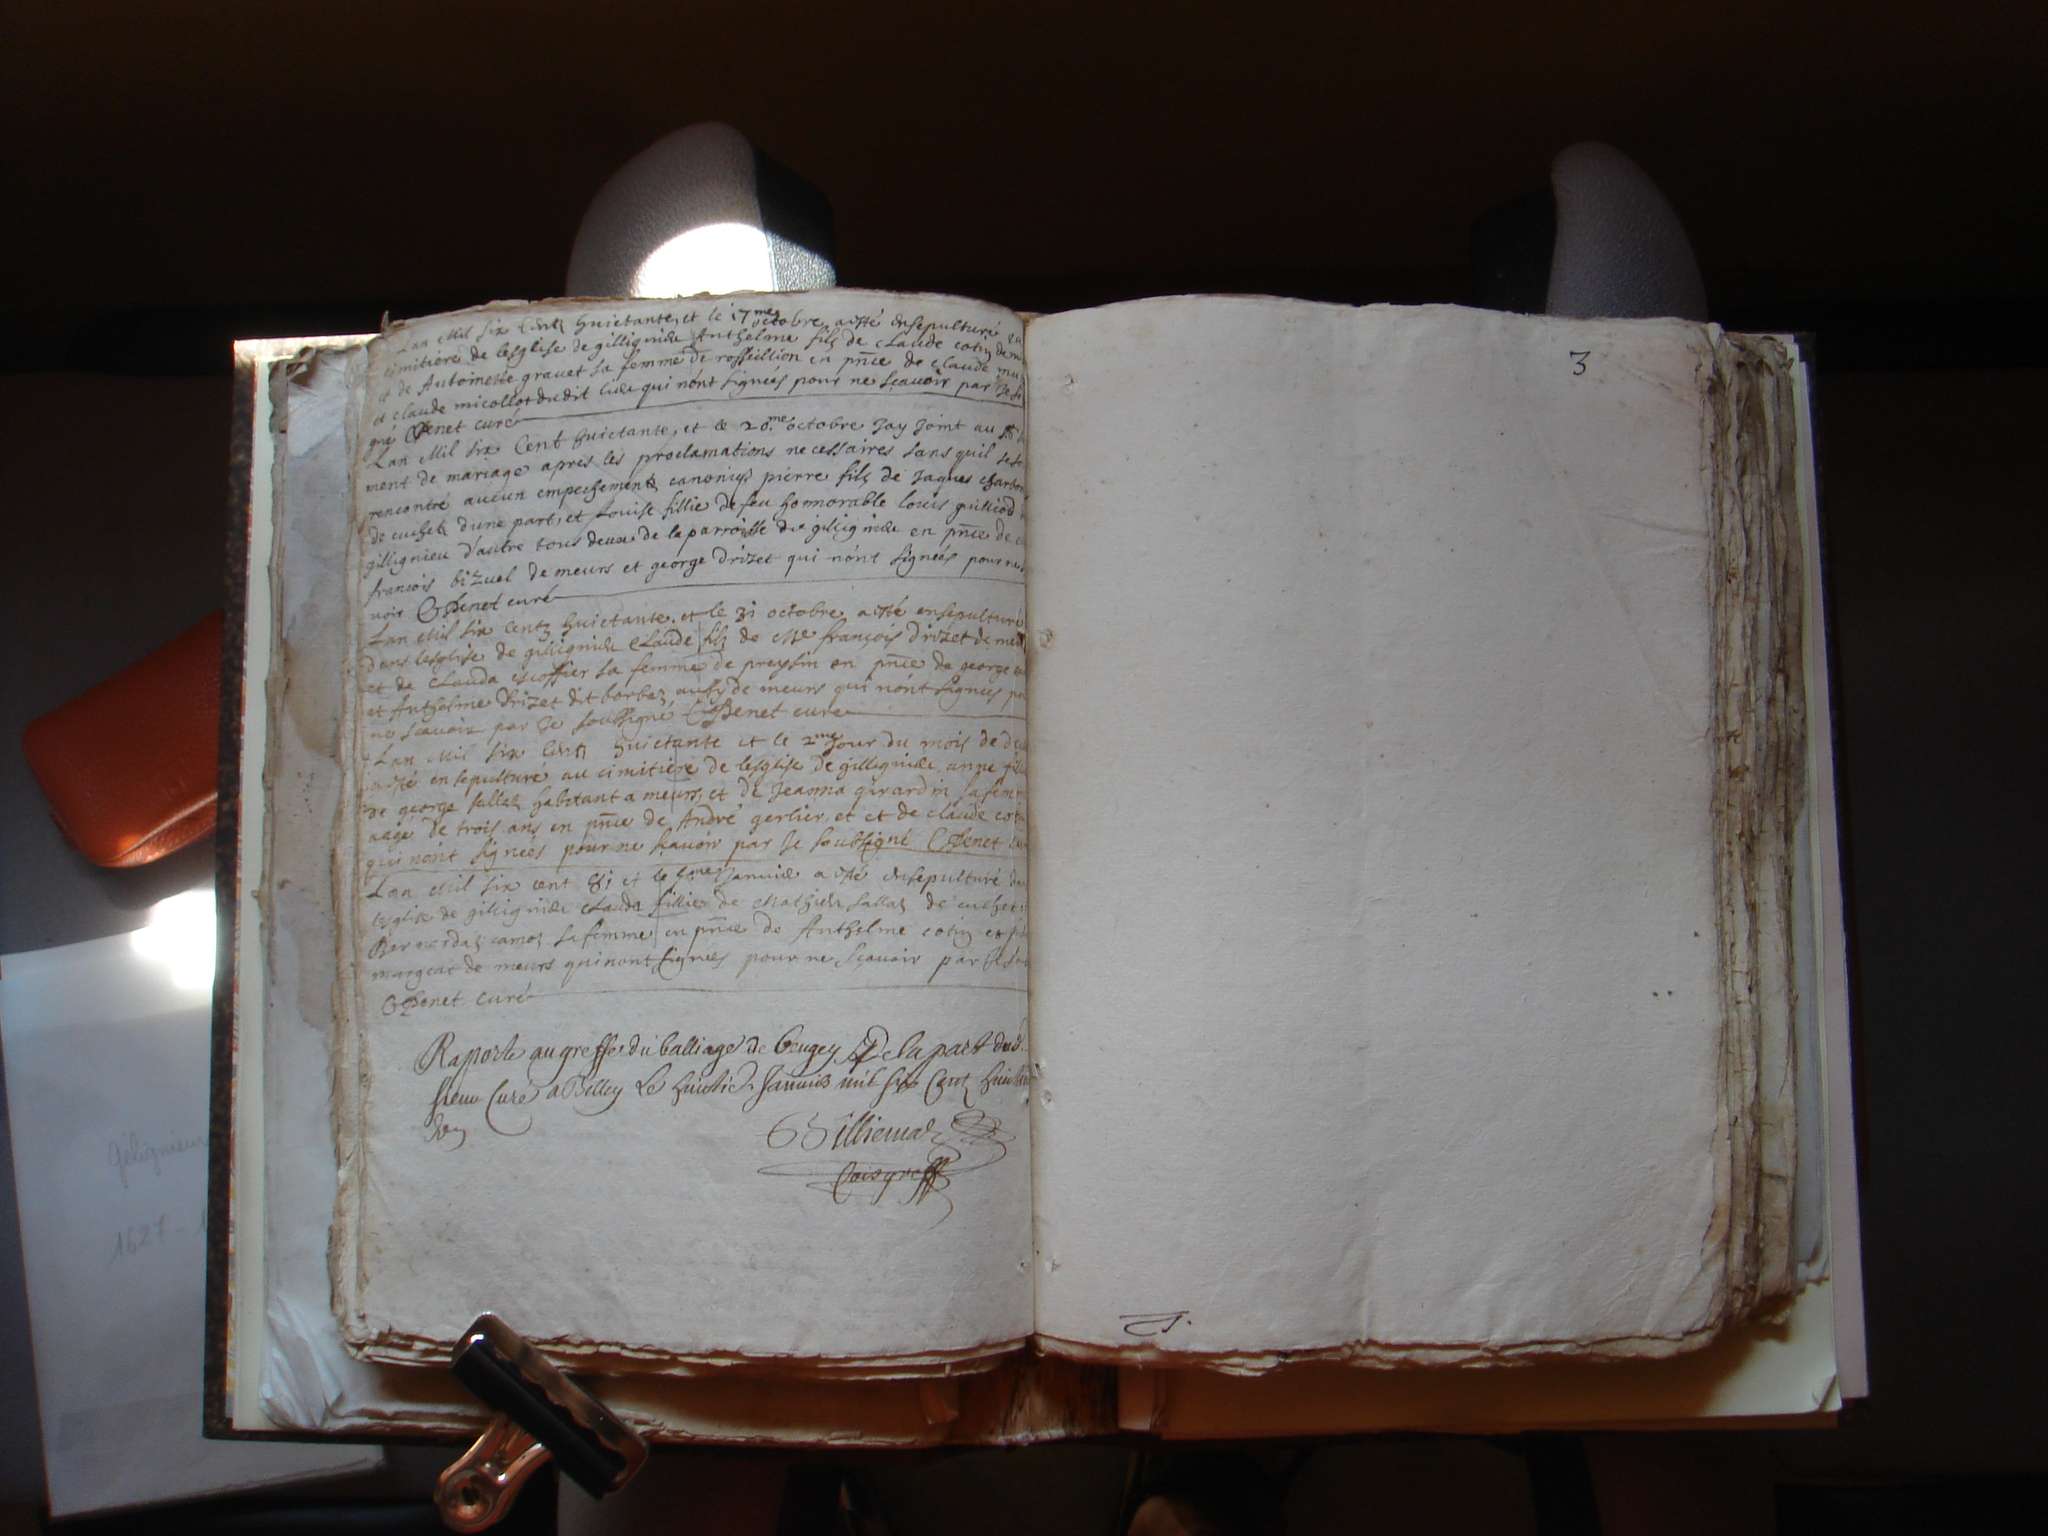 Lan Mil six Centz huictante, et le 17me octobre a esté ensepulturé
cimitiere de lesglise de gillignieu Anthelme fils de Claude cotin de
et de Antoinette gravet sa femme de rossillion en pnce de Claude
et Claude micollot dudit lieu qui n'ont signées pour ne sçavoir par Je
gné Benet curé
Lan Mil six Cent huictante, et le 20.me octobre Jay Joint au
ment de mariage apres les proclamations necessaires sans quil se
rencontré aucun empechementz canonicq pierre filz de Jaques
de cuchetz dune part, et Louise fillie de feu honnorable louis
gillignieu d'autre tous deux de la parroisse de gillignieu en pnce de
françois bizuel de meurs et george drizet qui n'ont signées pour
voir Benet curé
Lan Mil six Centz huictante, et le 31 octobre a esté ensepulturé
dans lesglise de gillignieu Claude filz de Me françois drizet de
et de Clauda escoffier sa femme de preyssin en pnce de george
et Anthelme drizet dit borbaz aussy de meurs qui n'ont signees
ne sçavoir par Je soussigné Benet curé
Lan Mil six Centz huictante et le 2me Jour du mois de
a esté ensepulturé au cimitiere de lesglise de gillignieu anne
de george sallaz habitant a meurs, et de Jeanna girardin sa
aage de trois ans en pnce de André gerlier, et et de Claude
qui n'ont signées pour ne scavoir par Je soubsigné Benet
Lan Mil six cent 81 et le Janvier a esté ensepulturé
lesglise de gillignieu Clauda fillie de Mathieu sallaz de
Bernardaz camoz sa femme en pnce de Anthelme cotin et
margeat de meurs qui nont signees pour ne sçavoir par Je
Benet curé
Raporté au greffe du balliage de beugey De la part dud.
sieur Curé a Belley Le huictie. Janvier mil six Centz
Coisgreff
3
Geligneux
1627 -